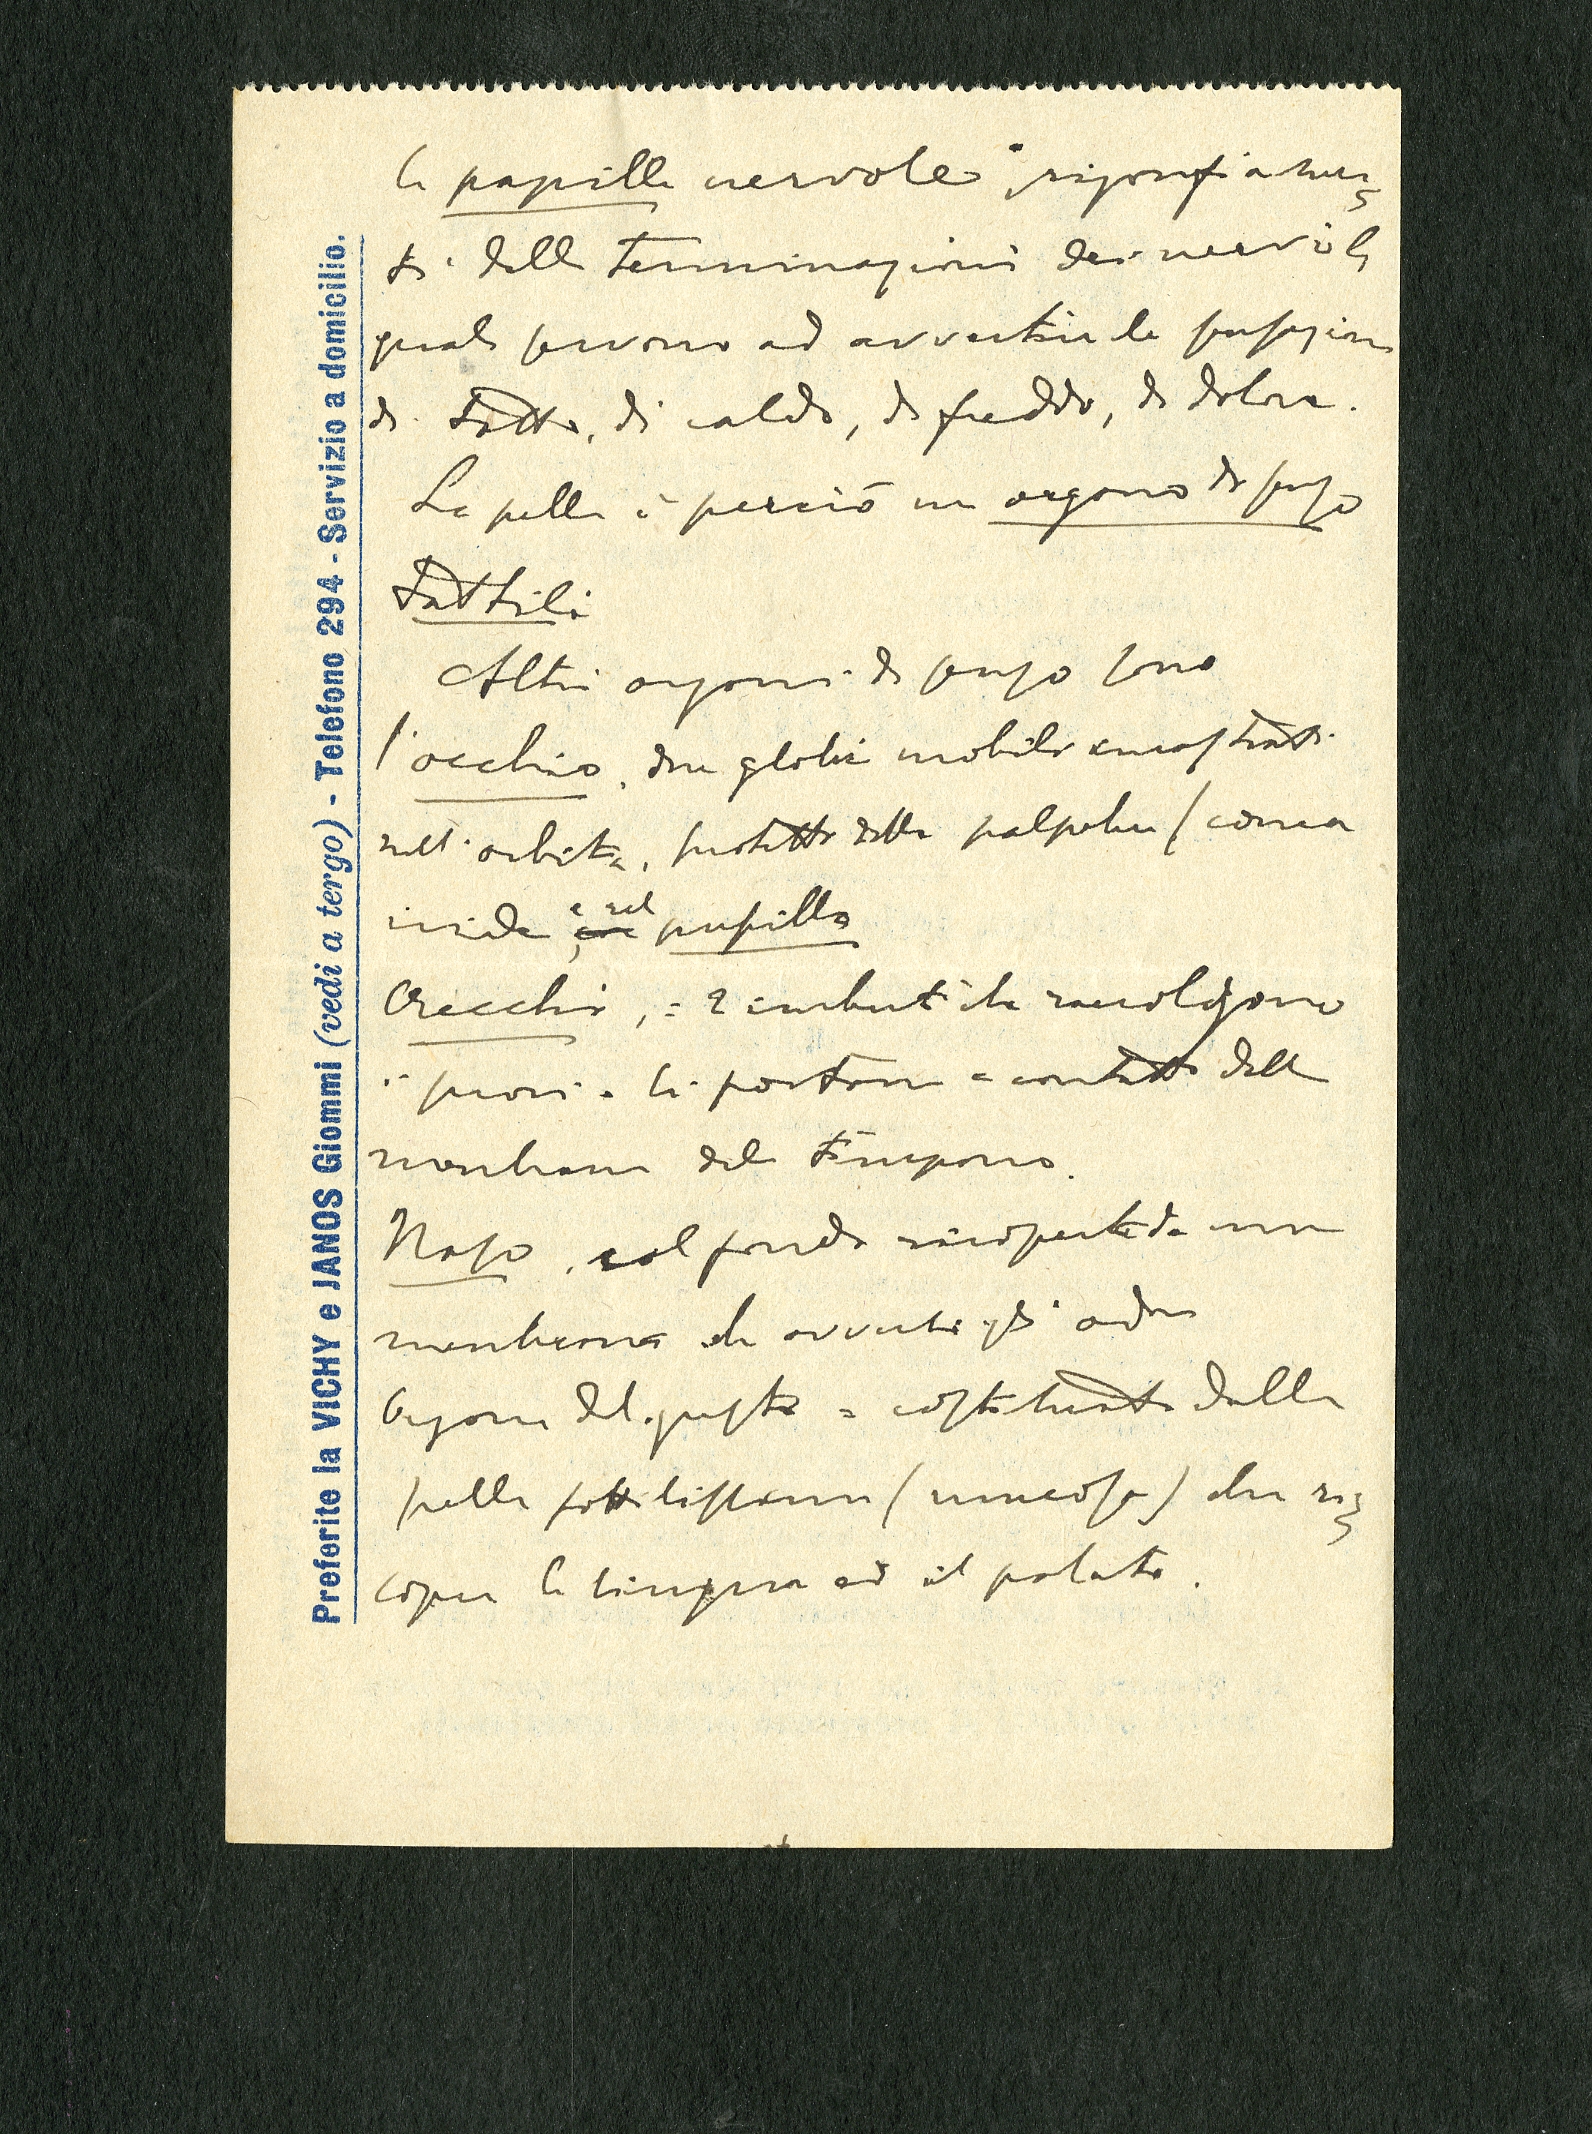 le papille nervose, rigonfiamen=
ti delle terminazioni dei nervi le
quali servono ad avvertire le sensazioni
di tatto, di caldo, di freddo, di dolore.
La pelle è perciò un organo di senso
tattile
Altri organi di senso sono
l'occhio, due globi mobili incastrati
nell'orbita, protetti dalle palpebre (cornea
iride e nel pupilla
Orecchio, = 2 imbuti che raccolgono
i suoni e li portano a contatto della
membrana del timpano.
Naso, col fondo ricoperto da una
membrana che avverte gli odori
Organo del gusto = costituito dalla
pelle sottilissima (mucosa) che ri=
copre la lingua ed il palato.
Preferite la VICHY e JANOS Giommi (vedi a tergo) - Telefono 294 - Servizio a domicilio.